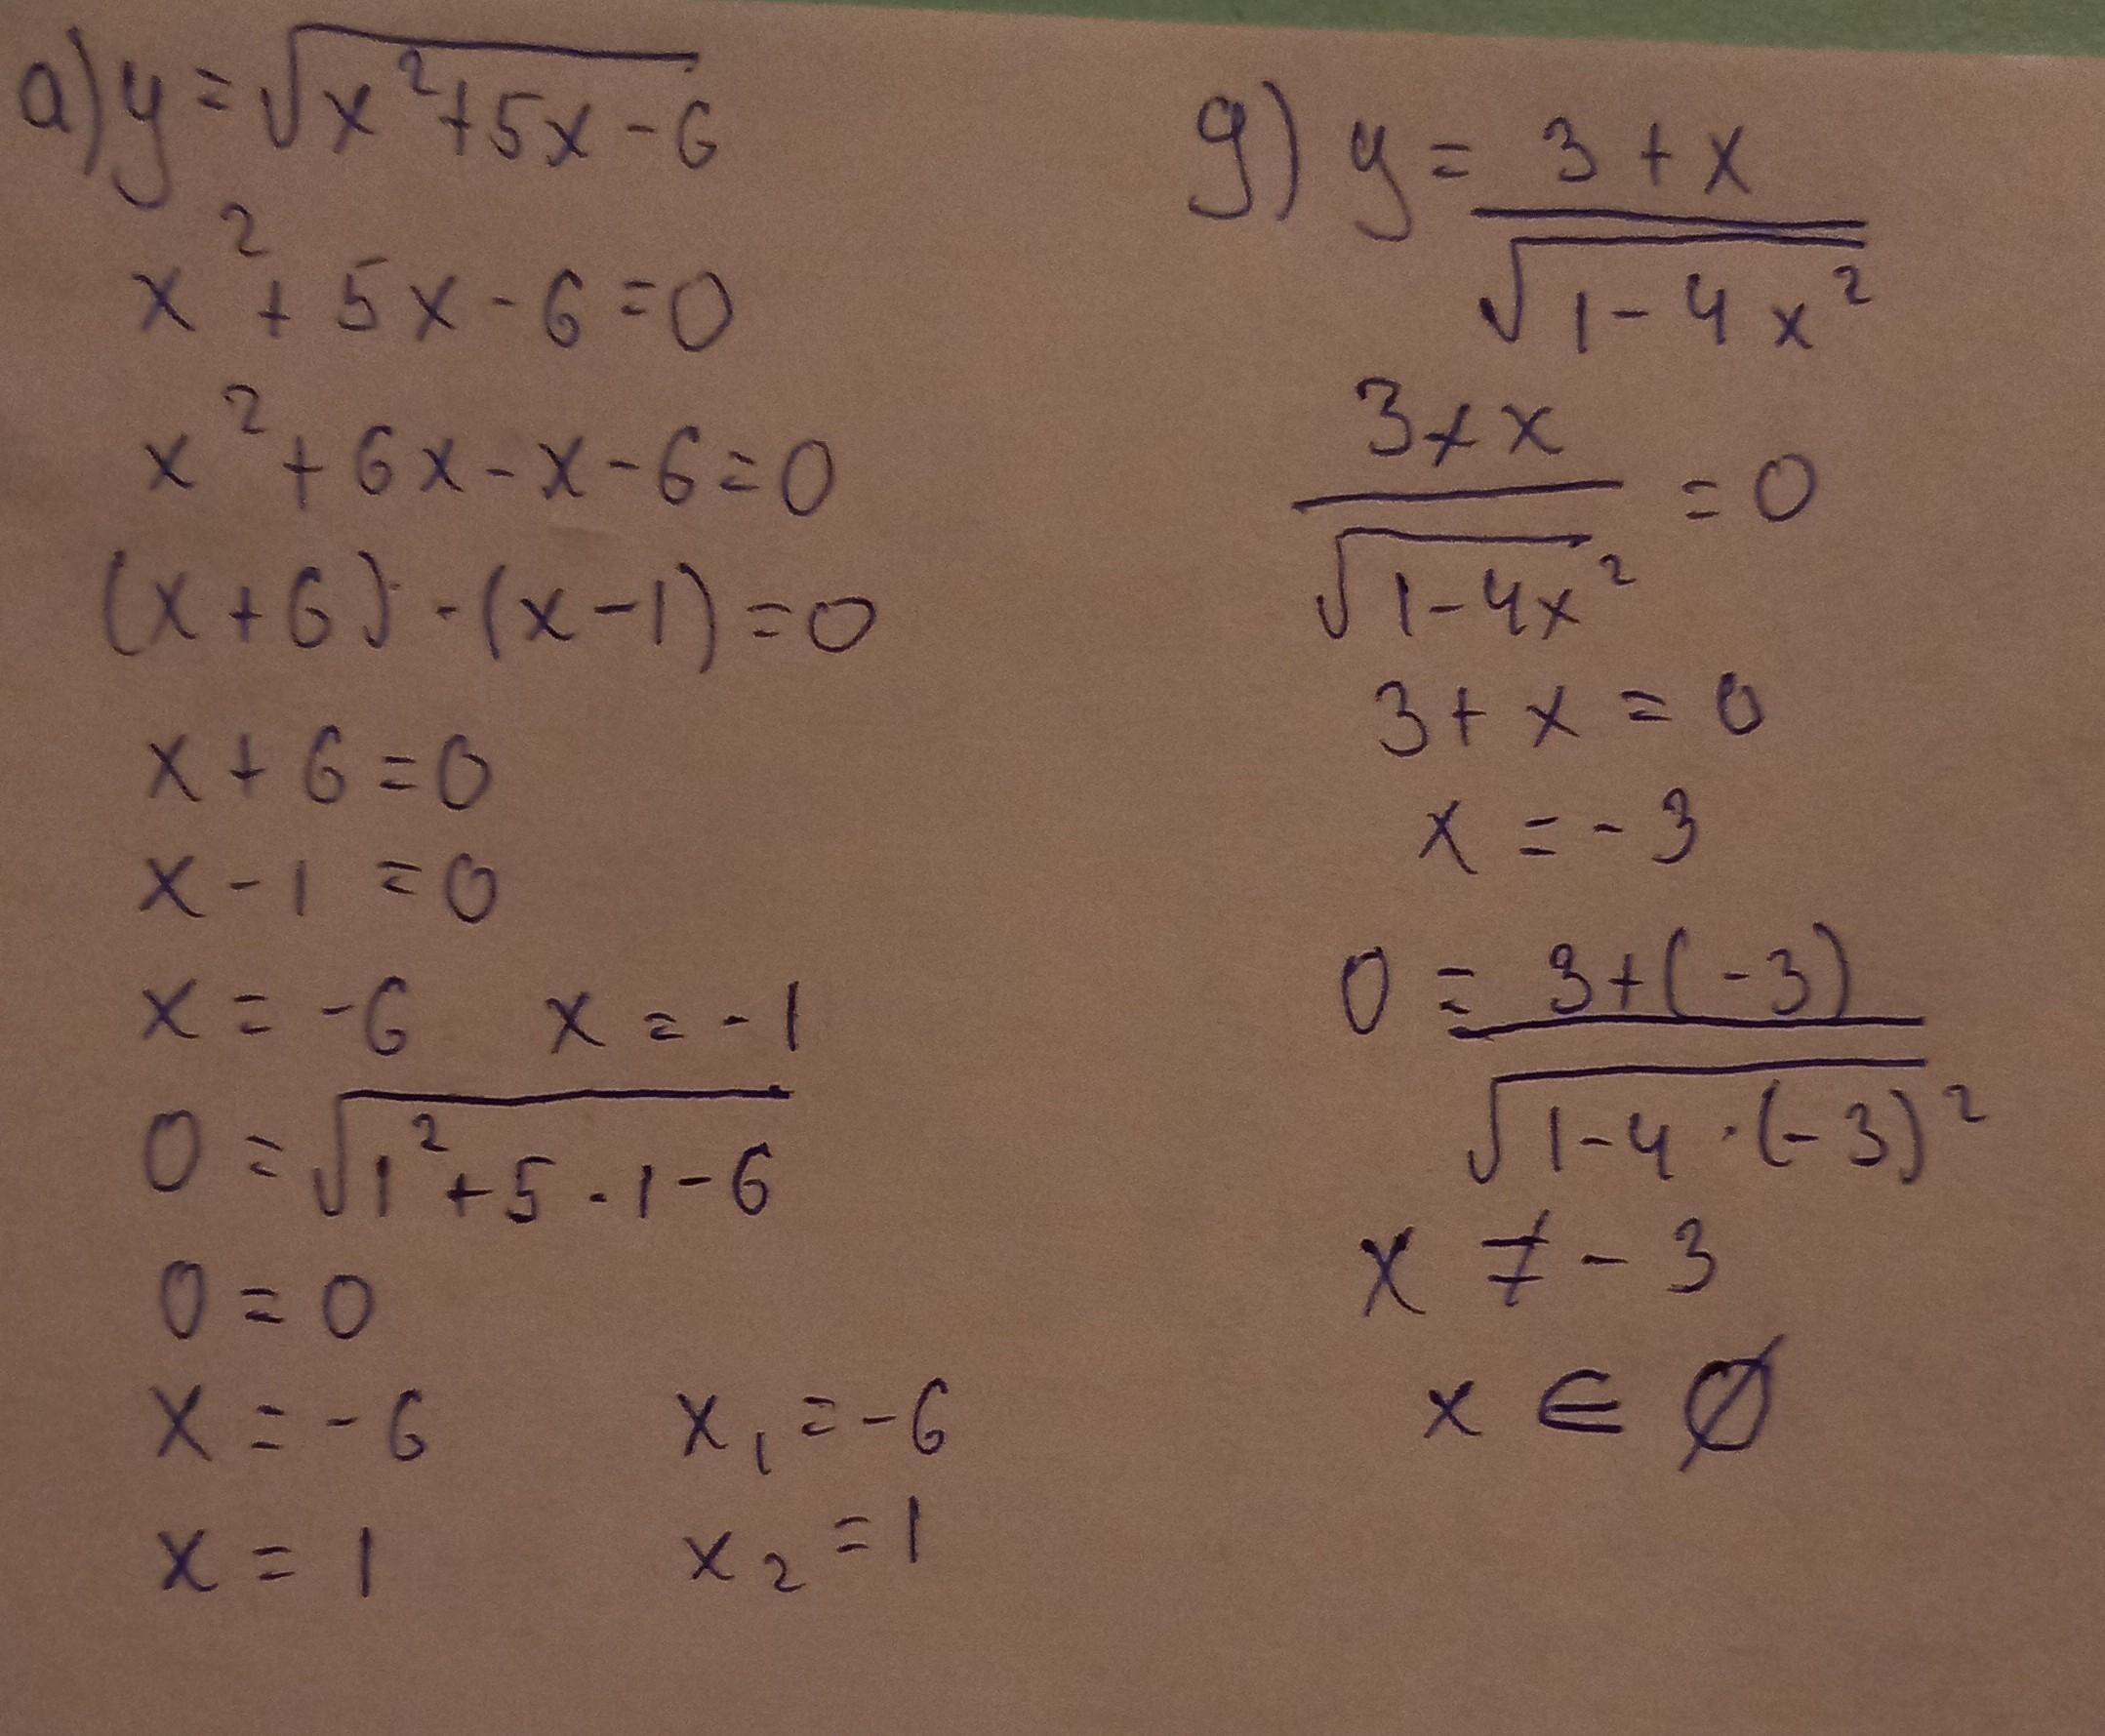 а) y = √(x² + 5x - 6)
x² + 5x - 6 = 0
x² + 6x - x - 6 = 0
(x + 6) · (x - 1) = 0
x + 6 = 0
x - 1 = 0
x = -6 x = -1
0 = √(1² + 5 · 1 - 6)
0 = 0
x = -6 x₁ = -6
x = 1 x₂ = 1
g) y = 3 + x
√(1 - 4x²)
3 + x
= 0
√(1 - 4x²)
3 + x = 0
x = -3
0 = 3 + (-3)
√(1 - 4 · (-3)²)
x ≠ -3
x ∈ ∅